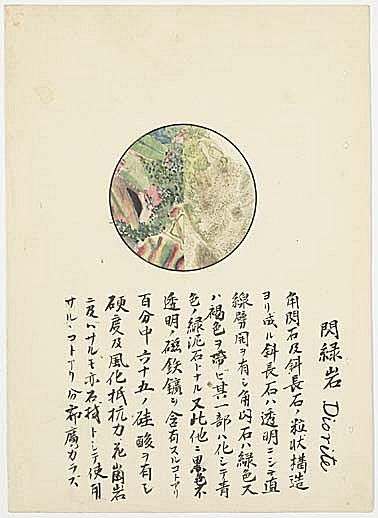 閃緑岩 Diorite
角閃石及斜長石ノ粒状構造
ヨリ成ル斜長石ハ透明ニシテ直
線劈開ヲ有シ角閃石ハ緑色又
ハ褐色ヲ帯ビ其一部ハ化シテ青
色ノ緑泥石トナル又此他ニ黒色不
透明ノ磁鉄鑛ヲ含有スルコトアリ
百分中六十五ノ硅酸ヲ有シ
硬度及風化抵抗力花崗岩
ニ及バザルモ亦石材トシテ使用
サルヽコトアリ分布廣カラズ